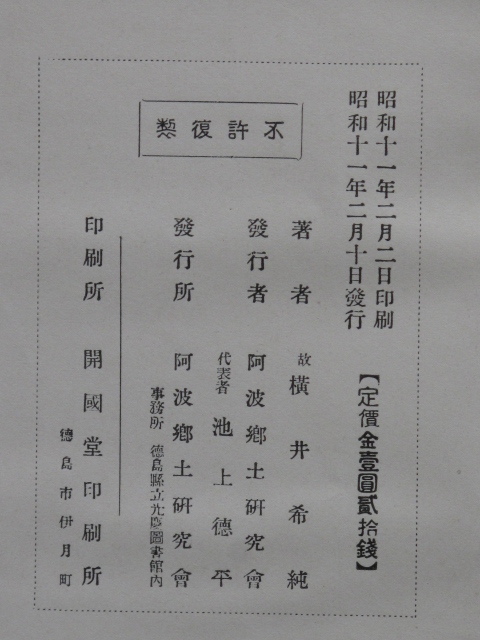 昭和十一年二月二日印刷
昭和十一年二月十日發行
【定價金壹圓貳拾錢】
不許復製
著者 故 橫井希純
發行者 阿波鄕土硏究會
代表者 池上德平
發行所 阿波鄕土硏究會
事務所 德島縣立光慶圖書館內
印刷所 開國堂印刷所
德島市伊月町